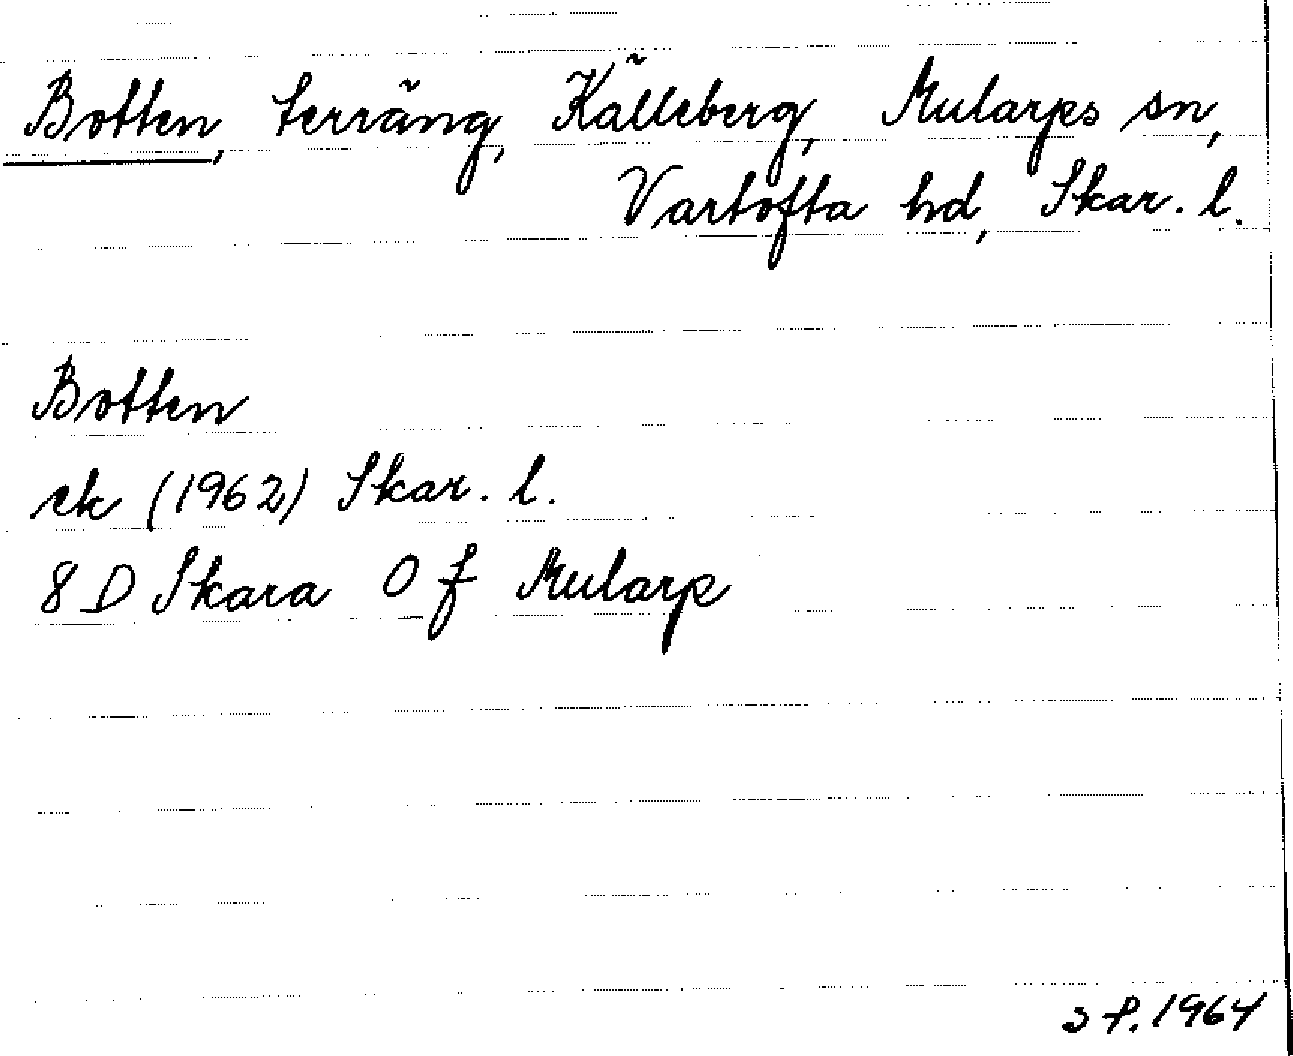 Botten, terräng, Källeberg, Mularps sn,
Vartofta hd, Skar. l.
Botten
ek (1962) Skar. l.
8 D Skara 0 f Mularp
1964